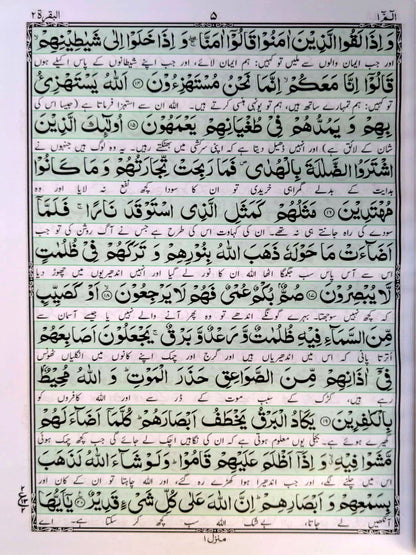 البقرة ٢
٥
الٓمٓ ١
وَ اِذَا لَقُوا الَّذِيْنَ اٰمَنُوْا قَالُوْۤا اٰمَنَّا ۖۚ وَ اِذَا خَلَوْا اِلٰى شَيٰطِيْنِهِمْ ۙ
اور جب ایمان والوں سے ملیں تو کہیں: ہم ایمان لائے، اور جب اپنے شیطانوں کے پاس اکیلے ہوں
قَالُوْۤا اِنَّا مَعَكُمْ ۙ اِنَّمَا نَحْنُ مُسْتَهْزِءُوْنَ ۝۱۴ اَللّٰهُ يَسْتَهْزِئُ
تو کہیں: ہم تمہارے ساتھ ہیں، ہم تو یونہی ہنسی کرتے ہیں۔ اللہ ان سے استہزا فرماتا ہے (جیسا اس کی
بِهِمْ وَ يَمُدُّهُمْ فِيْ طُغْيَانِهِمْ يَعْمَهُوْنَ ۝۱۵ اُولٰٓئِكَ الَّذِيْنَ
شان کے لائق ہے) اور انہیں ڈھیل دیتا ہے کہ اپنی سرکشی میں بھٹکتے رہیں۔ یہ وہ لوگ ہیں جنہوں نے
اشْتَرَوُا الضَّلٰلَةَ بِالْهُدٰى ۪ فَمَا رَبِحَتْ تِّجَارَتُهُمْ وَ مَا كَانُوْا
ہدایت کے بدلے گمراہی خریدی تو ان کا سودا کچھ نفع نہ لایا اور وہ
مُهْتَدِيْنَ ۝۱۶ مَثَلُهُمْ كَمَثَلِ الَّذِي اسْتَوْقَدَ نَارًا ۚ فَلَمَّاۤ
سودے کی راہ جانتے ہی نہ تھے۔ ان کی کہاوت اس کی طرح ہے جس نے آگ روشن کی تو جب
اَضَآءَتْ مَا حَوْلَهٗ ذَهَبَ اللّٰهُ بِنُوْرِهِمْ وَ تَرَكَهُمْ فِيْ ظُلُمٰتٍ
اس سے آس پاس سب جگمگا اٹھا اللہ ان کا نور لے گیا اور انہیں اندھیریوں میں چھوڑ دیا
لَّا يُبْصِرُوْنَ ۝۱۷ صُمٌّۢ بُكْمٌ عُمْيٌ فَهُمْ لَا يَرْجِعُوْنَ ۝۱۸ۙ اَوْ كَصَيِّبٍ
کہ کچھ نہیں سوجھتا۔ بہرے گونگے اندھے تو وہ پھر آنے والے نہیں یا جیسے آسمان سے
مِّنَ السَّمَآءِ فِيْهِ ظُلُمٰتٌ وَّ رَعْدٌ وَّ بَرْقٌ ۚ يَجْعَلُوْنَ اَصَابِعَهُمْ
اترتا پانی کہ اس میں اندھیریاں ہیں اور گرج اور چمک اپنے کانوں میں انگلیاں ٹھونس
فِيْۤ اٰذَانِهِمْ مِّنَ الصَّوَاعِقِ حَذَرَ الْمَوْتِ ؕ وَ اللّٰهُ مُحِيْطٌۢ
رہے ہیں، کڑک کے سبب موت کے ڈر سے اور اللہ کافروں کو
بِالْكٰفِرِيْنَ ۝۱۹ يَكَادُ الْبَرْقُ يَخْطَفُ اَبْصَارَهُمْ ؕ كُلَّمَاۤ اَضَآءَ لَهُمْ
گھیرے ہوئے ہے۔ بجلی یوں معلوم ہوتی ہے کہ ان کی نگاہیں اچک لے جائے گی جب کچھ چمک ہوئی
مَّشَوْا فِيْهِ ۙۗ وَ اِذَاۤ اَظْلَمَ عَلَيْهِمْ قَامُوْا ؕ وَ لَوْ شَآءَ اللّٰهُ لَذَهَبَ
اس میں چلنے لگے، اور جب اندھیرا ہوا کھڑے رہ گئے، اور اللہ چاہتا تو ان کے کان اور
بِسَمْعِهِمْ وَ اَبْصَارِهِمْ ؕ اِنَّ اللّٰهَ عَلٰى كُلِّ شَيْءٍ قَدِيْرٌ ۝۲۰ يٰۤاَيُّهَا
آنکھیں لے جاتا، بے شک اللہ سب کچھ کر سکتا ہے۔ اے
منزل ١